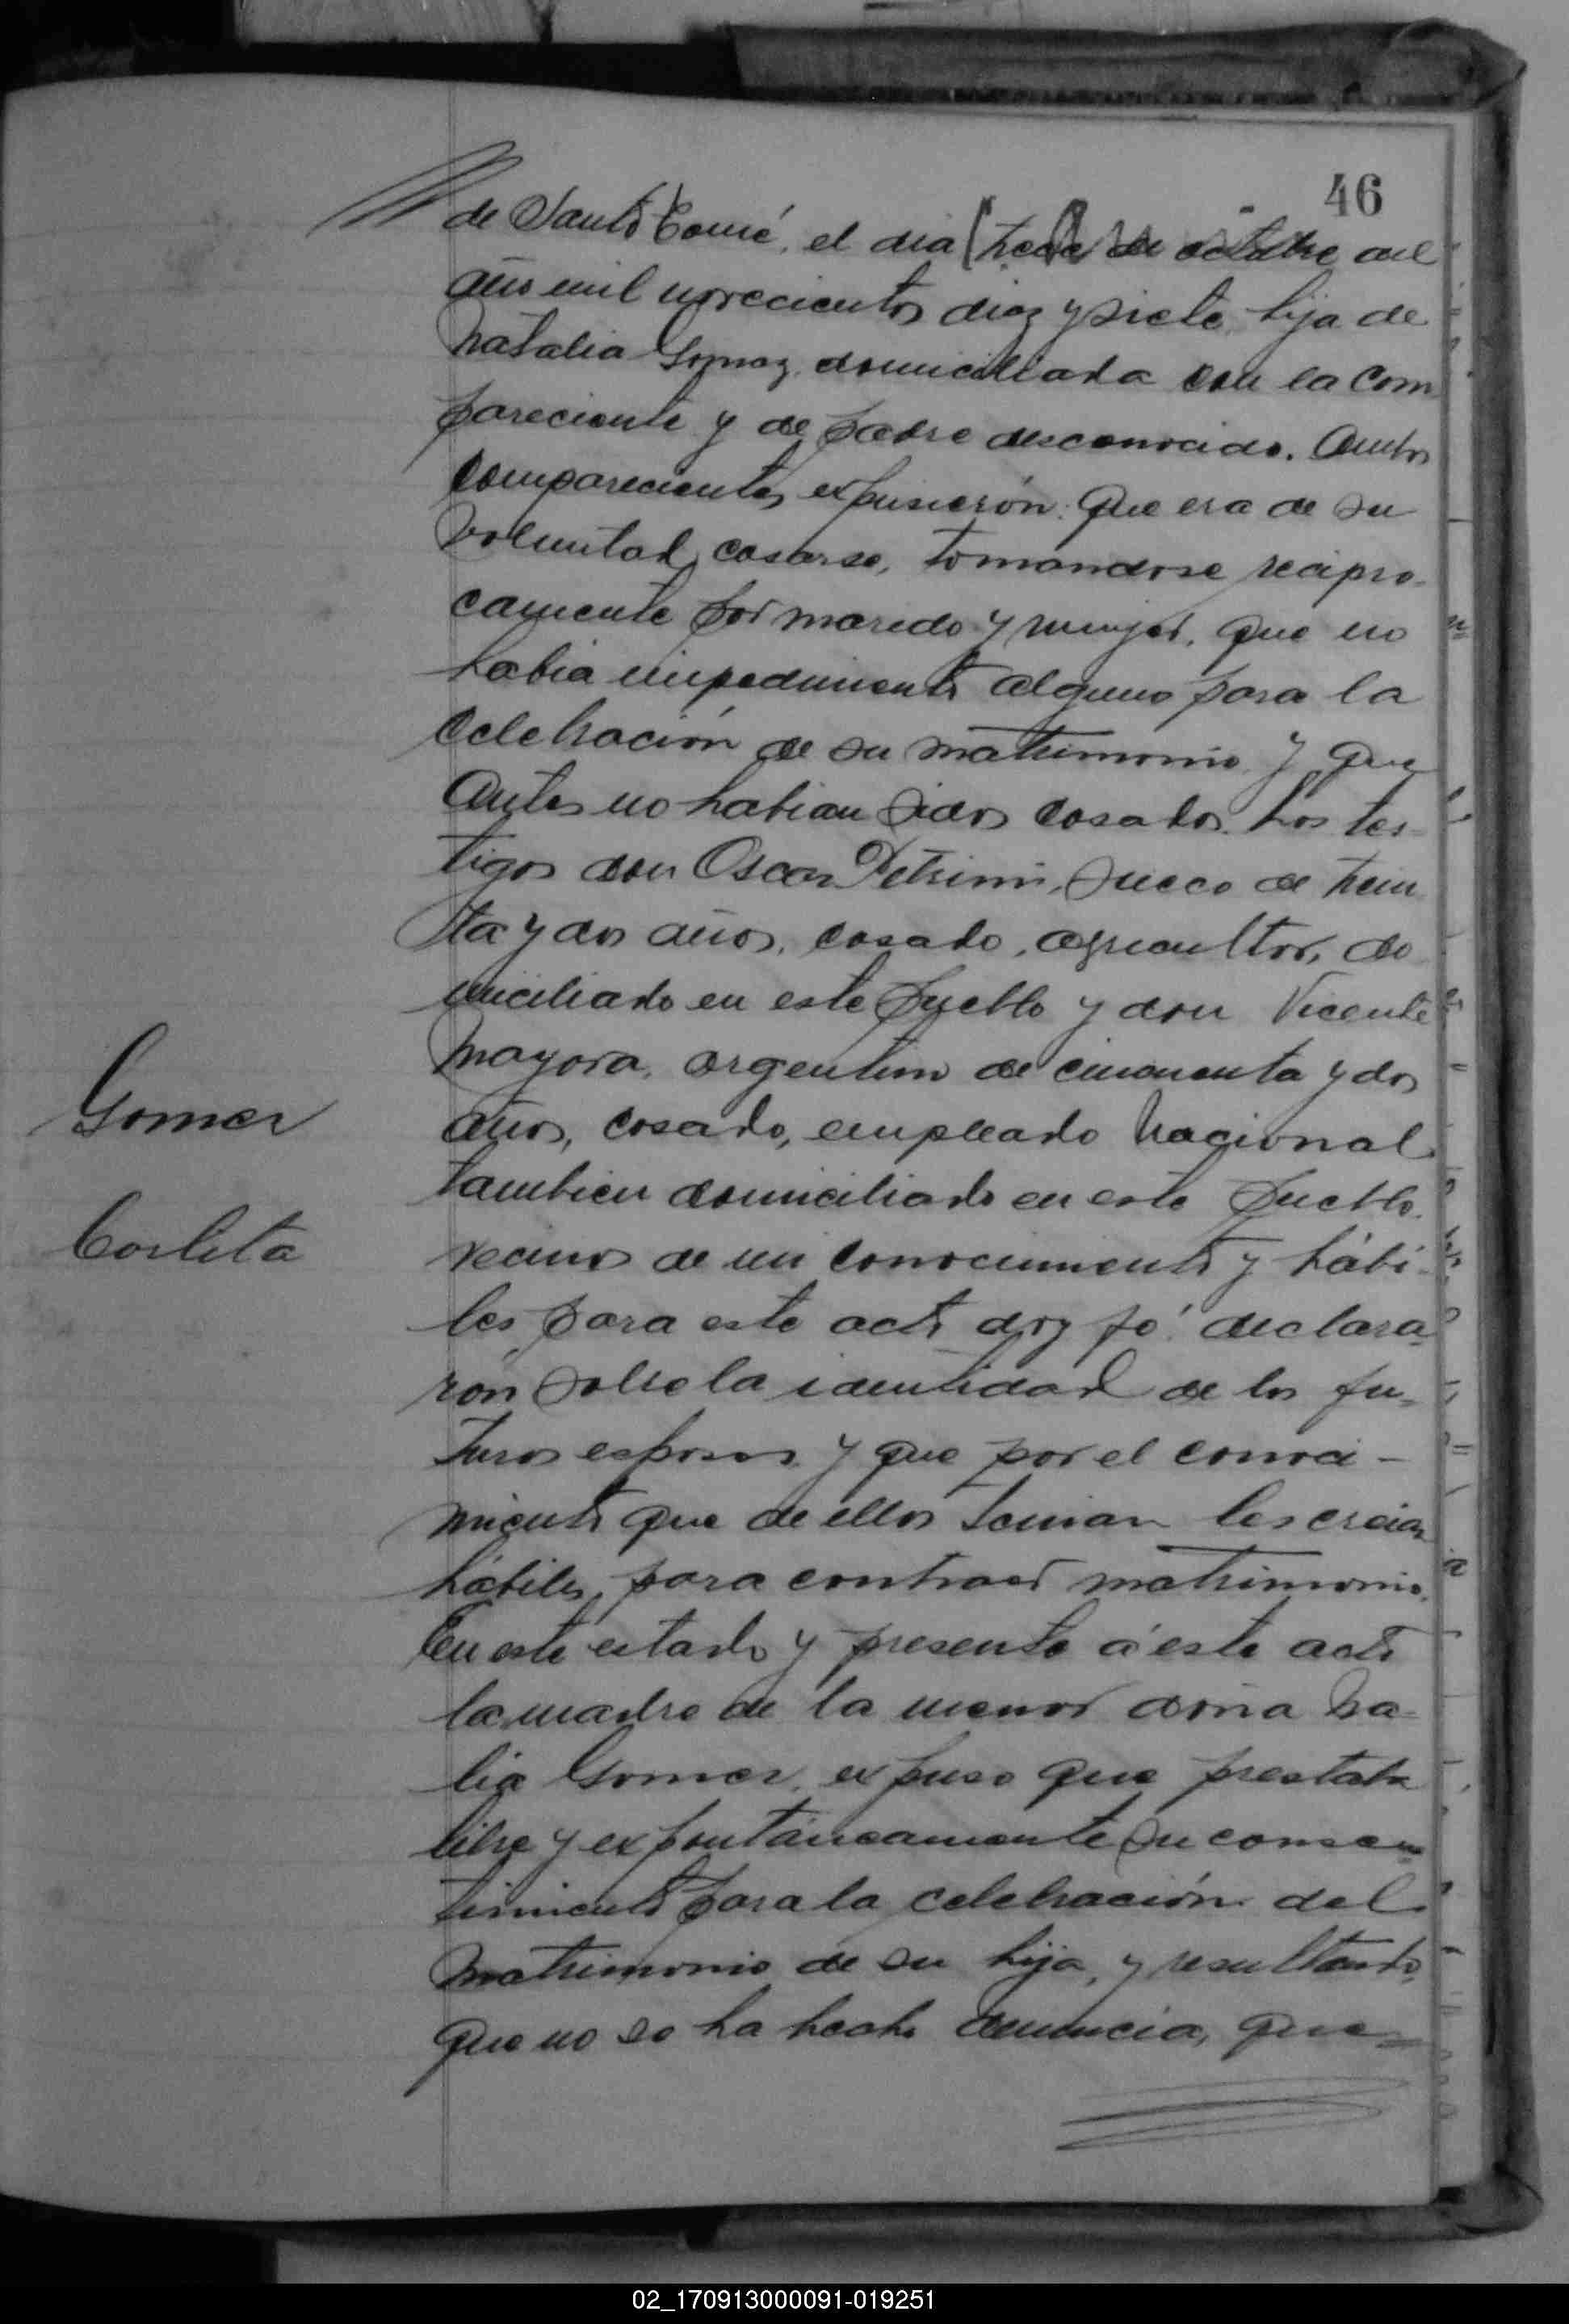 46
de Santo Tomé, el dia trece de octubre del
año mil novecientos diez y siete, hija de
Natalia Gomez, domiciliada con la com
pareciente y de padre desconocido. Ambos
comparecientes expusierón: Que era de su
voluntad casarse, tomandose recipro-
camente por marido y mujer, que no
habia impedimento alguno para la
celebración de su matrimonio y que
antes no habian sidos casados. Los tes-
tigos don Oscar Petrini, sueco de trein
ta y dos años, casado, agricultor, do
miciliado en este pueblo y don Vicente
Mayora, argentino de cincuenta y dos
años, casado, empleado Nacional
tambien domiciliado en este pueblo.
vecinos de mi conocimiento y hábi-
les para este acto doy fé: declara-
rón sobre la identidad de los fu-
turos esposos y que por el conoci-
miento que de ellos tenian les creian
hábiles para contraer matrimonio.
En este estado y presente á este acto
la madre de la menor doña Na-
lia Gomez, expuso que prestaba
libre y expontáneamente su consen-
timiento para la celebración del
matrimonio de su hija, y resultando,
que no se ha hecho denuncia, que
Gomez
Carlita
02_170913000091-019251